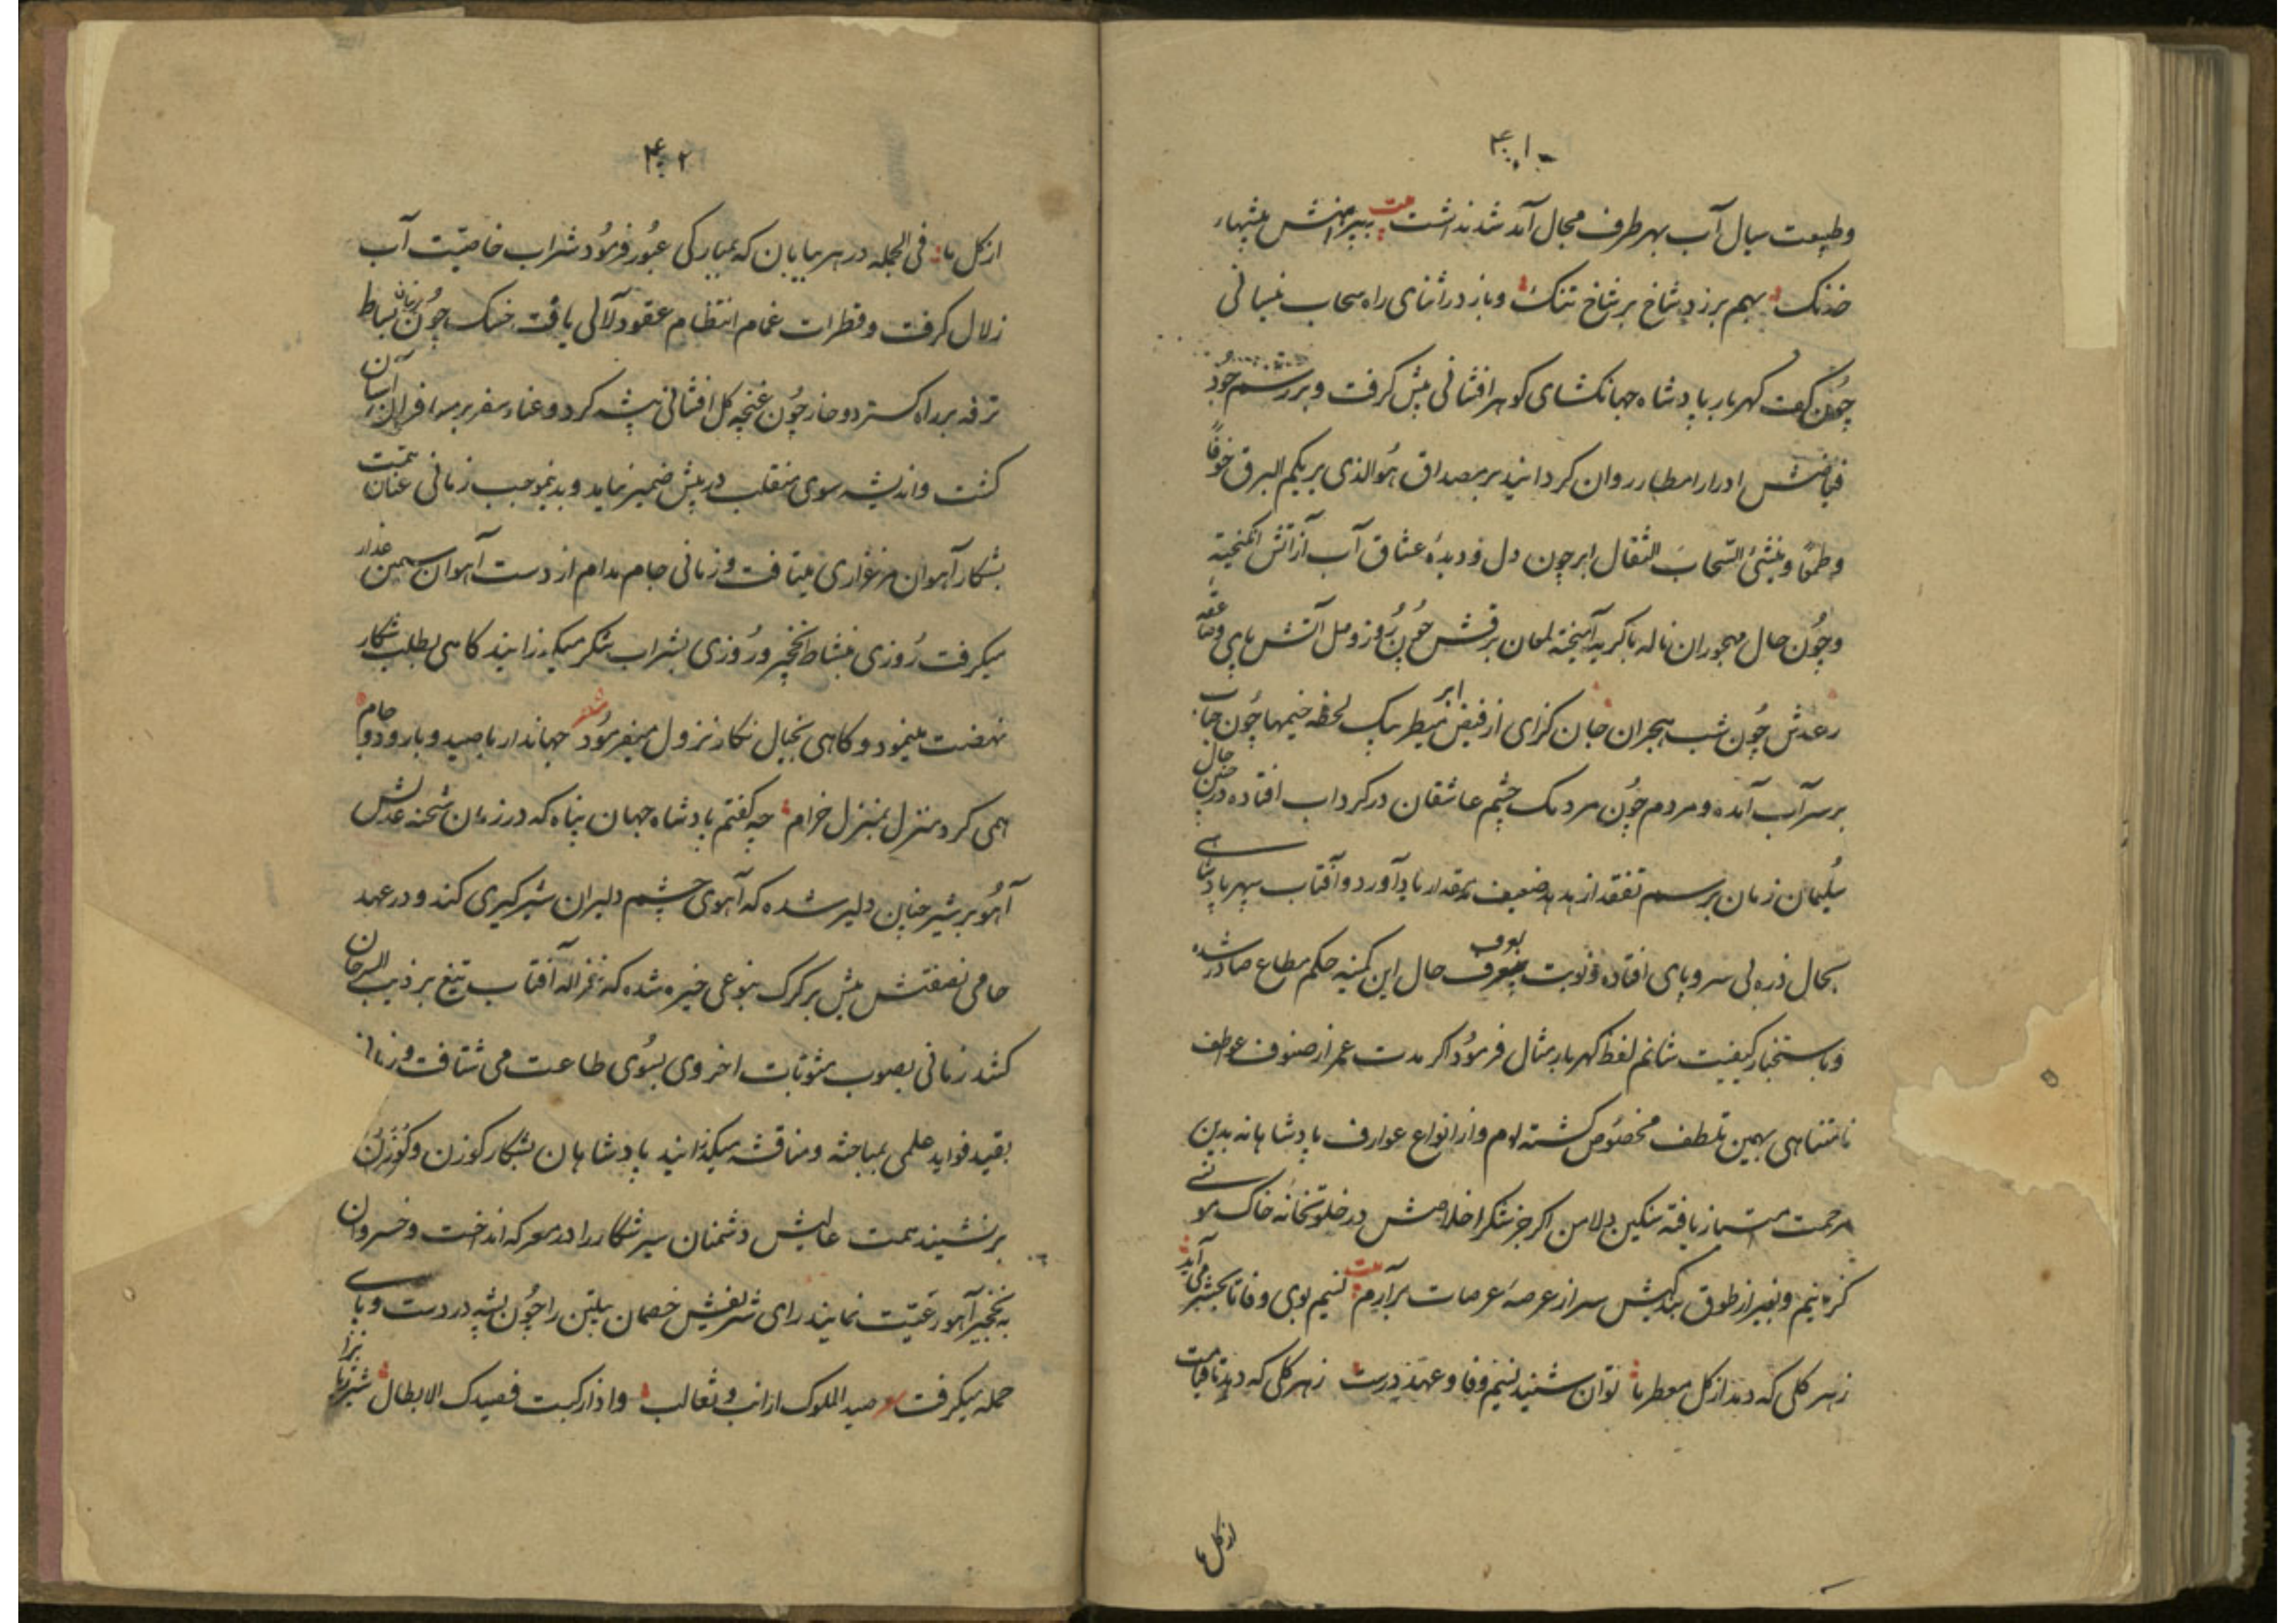 ۴۰۱
وطبیعت سیال آب بهر طرف مجال آمد شد نداشت بیت به پیرامنش بیشهاء
خدنک بهم برزده شاخ بر شاخ تنک وباز در اثنای راه سحاب نیسانی
چون کف کهربار پادشاه جهانکشای کوهر افشانی پیش کرفت و بر رسم جود
فیاضش ادرار امطار روان کردانید بر مصداق هُوالذی یریکم البرق خوفًا
وطمعًا وینشئ السّحابَ الثقال ابر چون دل ودیدهٔ عشاق آب از آتش انکیخته
وچون حال مهجوران ناله با کریه آمیخته لمعان برقش چون روز وصل آتش پای وصاعقه
رعدش چون شب هجران جان کزای از فیض ابر مطیر بیک لحظه خیمها چون حباب
بر سر آب آمده ومردم چون مردمک چشم عاشقان در کرداب افتاده در چنین حال
سلیمان زمان بر رسم تفقد از هدهد ضعیف بمقدار یاد آورد وآفتاب سپهر پادشاهی
بحال ذره بی سر وپای افتاده ونوبت بتعرف حال این کمینه حکم مطاع صادر شده
وباستخبار کیفیت شانم لفظ کهربار مثال فرمود اکر مدت عمر از صنوف عواطف
نامتناهی بهمین تلطف مخصوص کشته ام واز انواع عوارف پادشاهانه بدین
مرحمت امتیاز یافته سنکین دلا من اکر جز شکر اخلاصش در خلوتخانه خاک مونسی
کزینم وبغیر از طوق بندکیش سر از عرصهٔ عرصات برآرم بیت نسیم بوی وفا تا بحشر می آید
زهر کلی که دمد از کل معطر ما توان شنید نسیم وفا وعهد درست زهر کلی که دمد تا قیامت
از کل ما
۴۰۲
از کل ما فی الجمله در هر بیابان که بمبارکی عبور فرمود شراب خاصیّت آب
زلال کرفت وقطرات غمام انتظام عقود لآلی یافت خسک چون ریحان بساط
ترفه بر راه کسترد وخار چون غنچه کل افشانی پیشه کرد وعناء سفر بر مسافران آسان
کشت واندیشه سوی منقلب در پیش ضمیر نیاید وبدینموجب زمانی عنان همّت
بشکار آهوان مرغزاری میتافت وزمانی جام مدام از دست آهوان سیمین عذار
میکرفت روزی بنشاط نخچیر وروزی بشراب شکر میکذرانید کاهی بطلب شکار
نهضت مینمود وکاهی بخیال نکار نزول میفرمود شعر جهاندار با صید وبا رود وجام
همی کرد منزل بمنزل خرام چه کفتم پادشاه جهان پناه که در زمان شحنه عدلش
آهو بر شیر چنان دلیر شده که آهوی چشم دلبران شیر کیری کند ودر عهد
حامی نصفتش میش بر کرک بنوعی خیره شده که غزاله آفتاب تیغ بر ذیب السرحان
کشد زمانی بصوب مثوبات اخروی بسوی طاعت می شتافت وزمانی
بقید فواید علمی بمباحثه ومناقشه میکذرانید پادشاهان بشکار کوزن وکورن
برنشینند همت عالیش دشمنان سیر شکار را در معرکه انداخت وخسروان
به نخچیر آهو رغبت نمایند رای شریفش خصمان پیلتن را چون پشه در دست وپای
حمله میکرفت شعر صید الملوک ارانب وثعالب واذا رکبت فصیدک الابطال